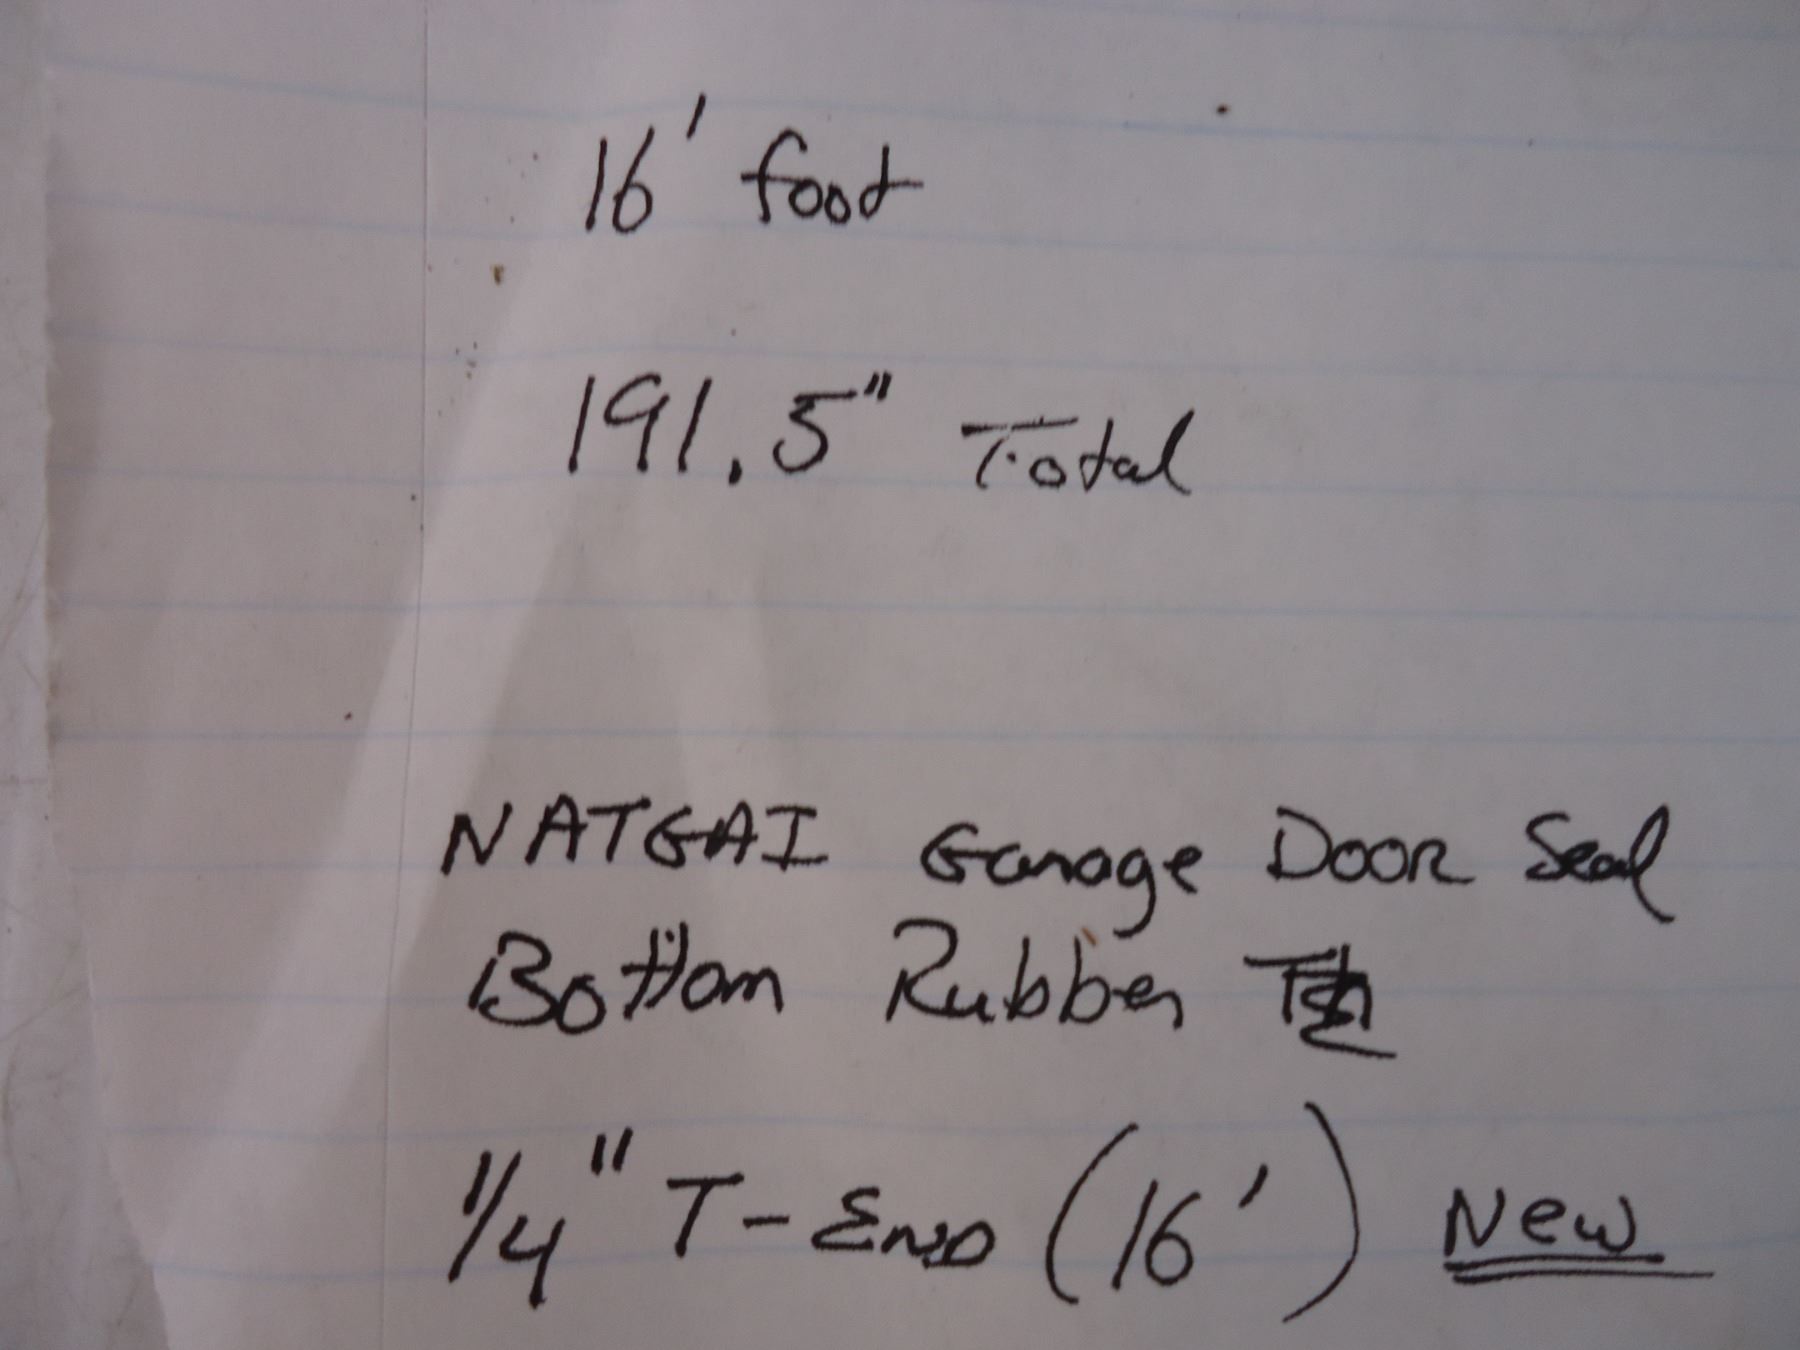 16' foot
191.5" Total
NATGAI Garage Door Seal
Bottom Rubber
1/4" T-End (16') New